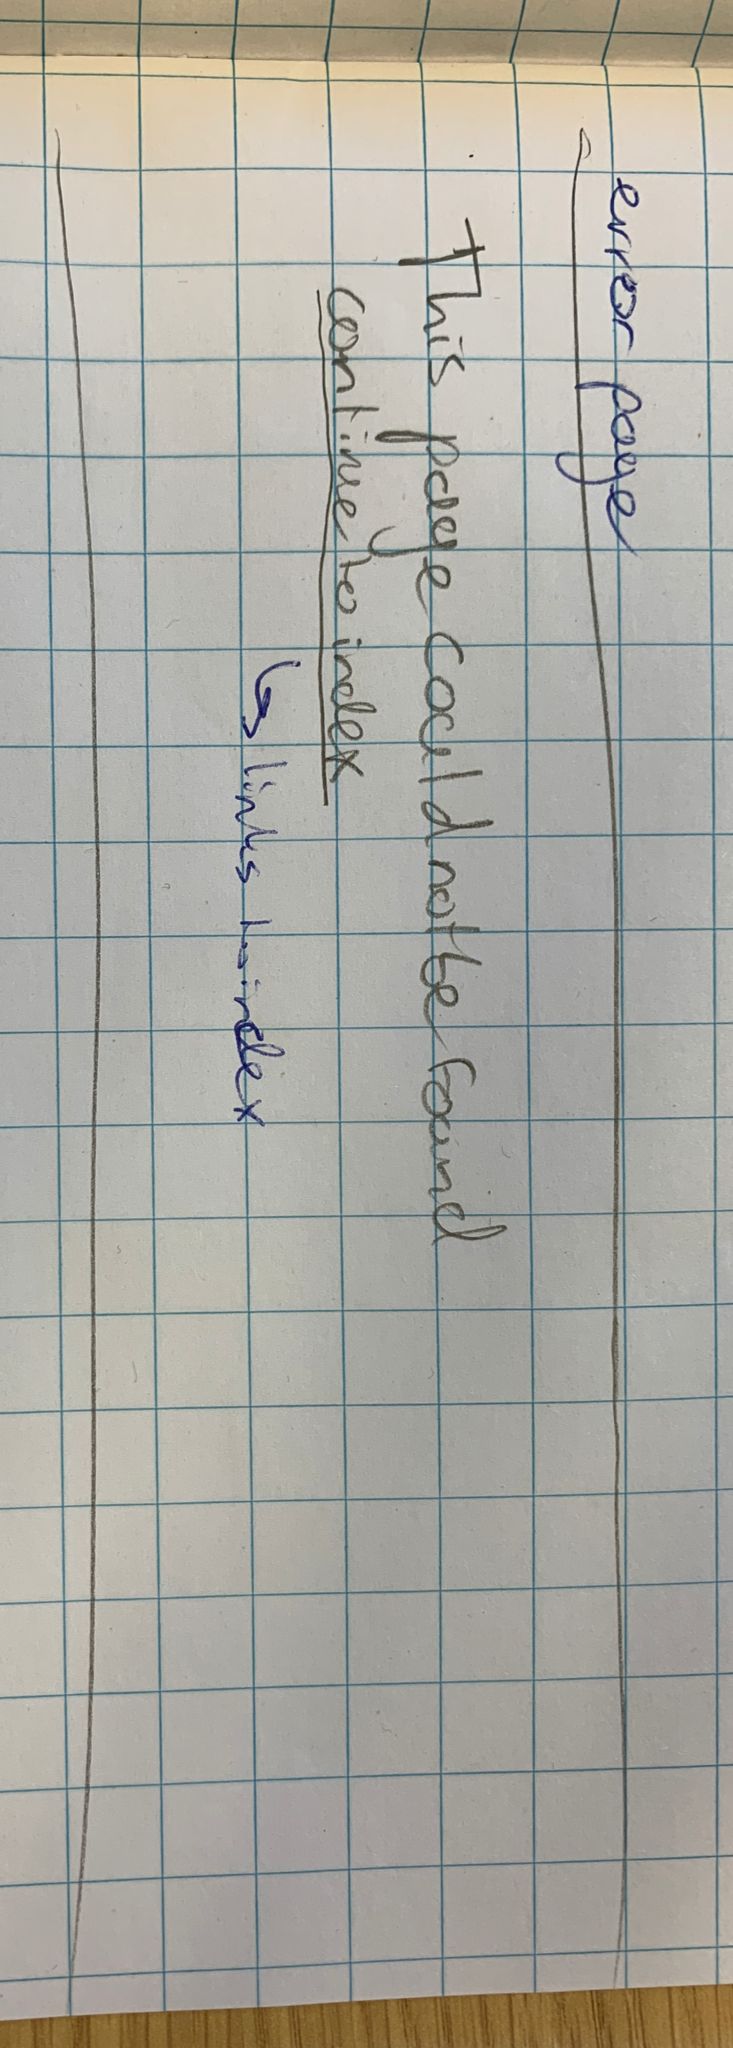 error page
This page could not be found
continue to index
↳ links to index